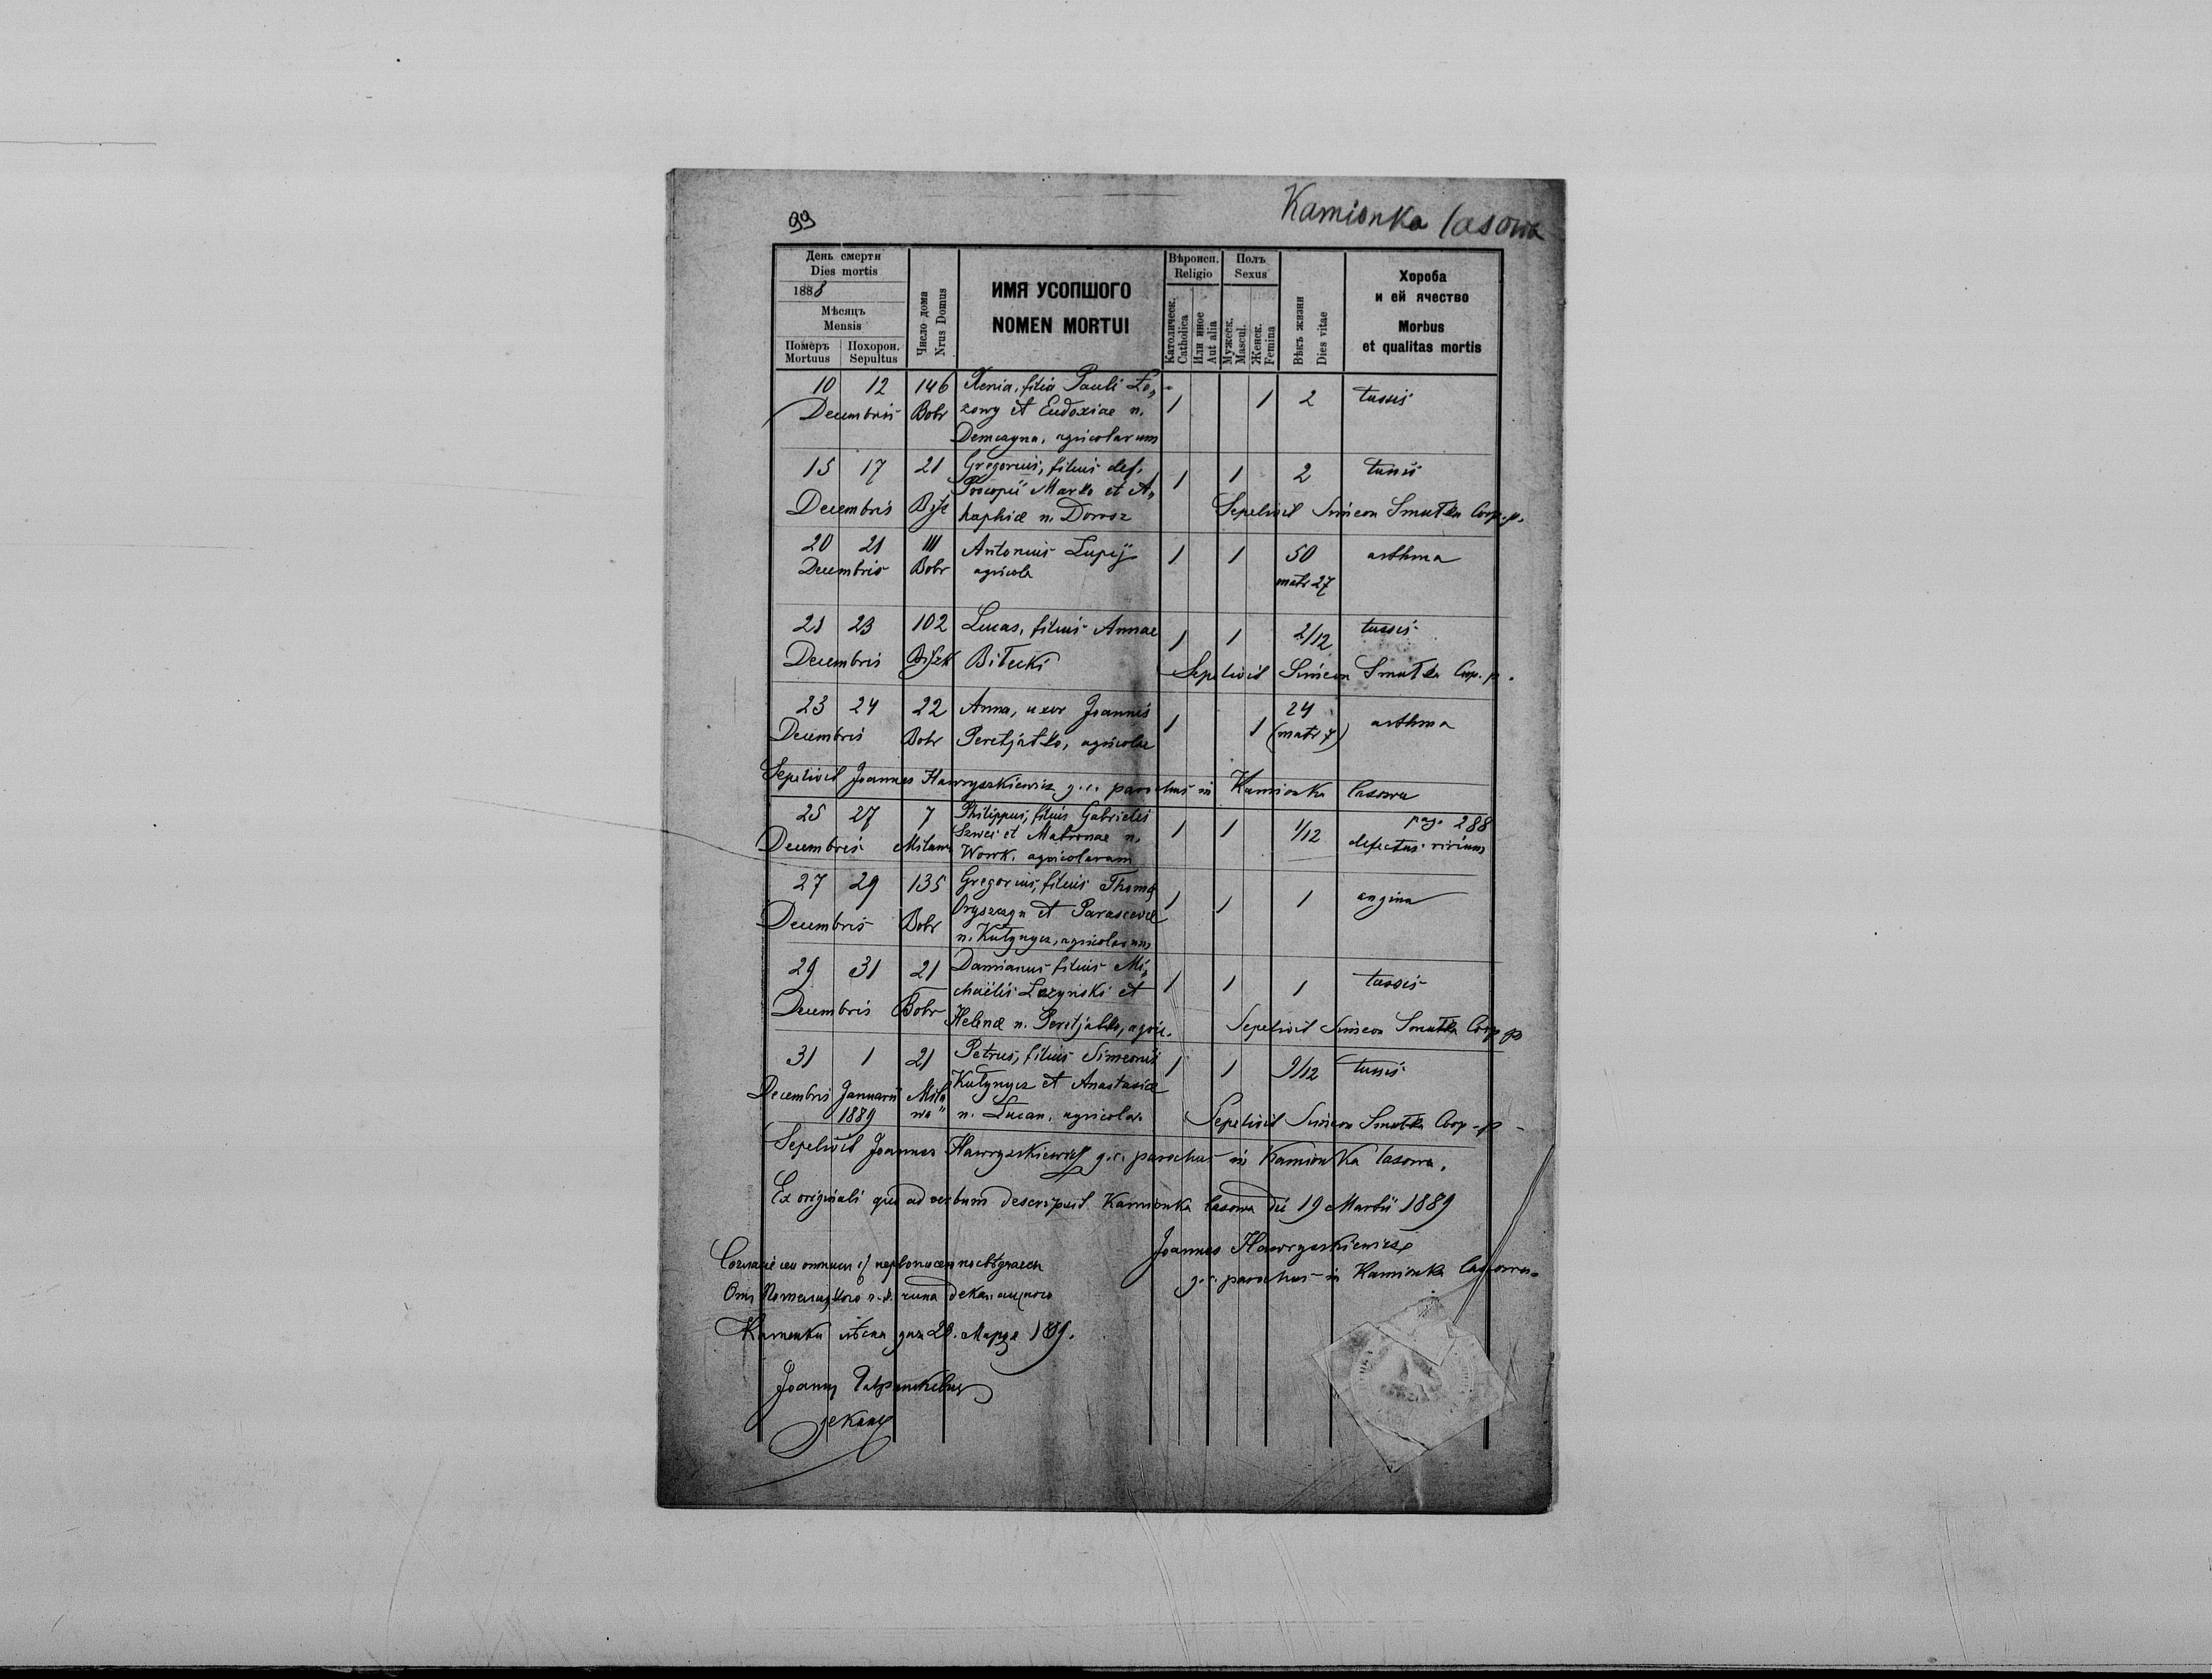 99
Kamionka lasowa
День смерти
Dies mortis
1888
Мѣсяцъ
Mensis
Померъ Похорон.
Mortuus Sepultus
Число дома
Nrus Domus
ИМЯ УСОПШОГО
NOMEN MORTUI
Вѣроисп.
Religio
Католическ.
Catholica
Или иное
Aut alia
Полъ
Sexus
Мужеск.
Mascul.
Женск.
Femina
Вѣкъ жизни
Dies vitae
Хороба
и ей ячество
Morbus
et qualitas mortis
10 12 146 Xenia, filia Pauli Ło„ 1 1 2 tussis
Decembris Bobr zowy et Eudoxiae n.
Demczyna, agricolarum
15 17 21 Gregorius, filius def. 1 1 2 tussis
Procopii Marko et A„
Decembris haphiæ n. Dorosz Sepelivit Simeon Smutka Coop. p.
20 21 111 Antonius Lupij 1 1 50 asthma
Decembris Bobr agricola matr 27
21 23 102 Lucas, filius Annae 1 1 2/12 tussis
Decembris Biłecki Sepelivit Simeon Smutka Cop. p.
23 24 22 Anna, uxor Joannis 1 1 24 asthma
Decembris Bobr Peretjatko, agricolae (matr 7)
Sepelivit Joannes Hawryszkiewicz g. c. parochus in Kamionka lasowa
25 27 7 Philippus, filius Gabrielis 1 1 1/12 pag. 288
Decembris Szwei et Matronae n. defectus virium
Wowk, agricolarum
27 29 135 Gregorius, filius Thomæ 1 1 1 angina
Decembris Bobr Oryszczyn et Parascevæ
n. Kutynycz, agricolarum
29 31 21 Damianus filius Mi„ 1 1 1 tussis
chaëlis Lozynski et
Decembris Bobr Helenæ n. Peretjatko, agric. Sepelivit Simeon Smutka Coop. p
31 1 21 Petrus, filius Simeonis 1 1 9/12 tussis
Decembris Januarii Miła Kutynycz et Anastasiæ
1889 wa" n. Lucan, agricolar. Sepelivit Simeon Smutka Coop. p
Sepelivit Joannes Hawryszkiewicz g. c. parochus in Kamionka lasowa.
Ex originali quo ad verbum descripsit Kamionka lasowa die 19 Martii 1889
Joannes Hawryszkiewicz
g. c. parochus in Kamionka lasowa
Каменка дня 28. Марта 1889.
деканъ